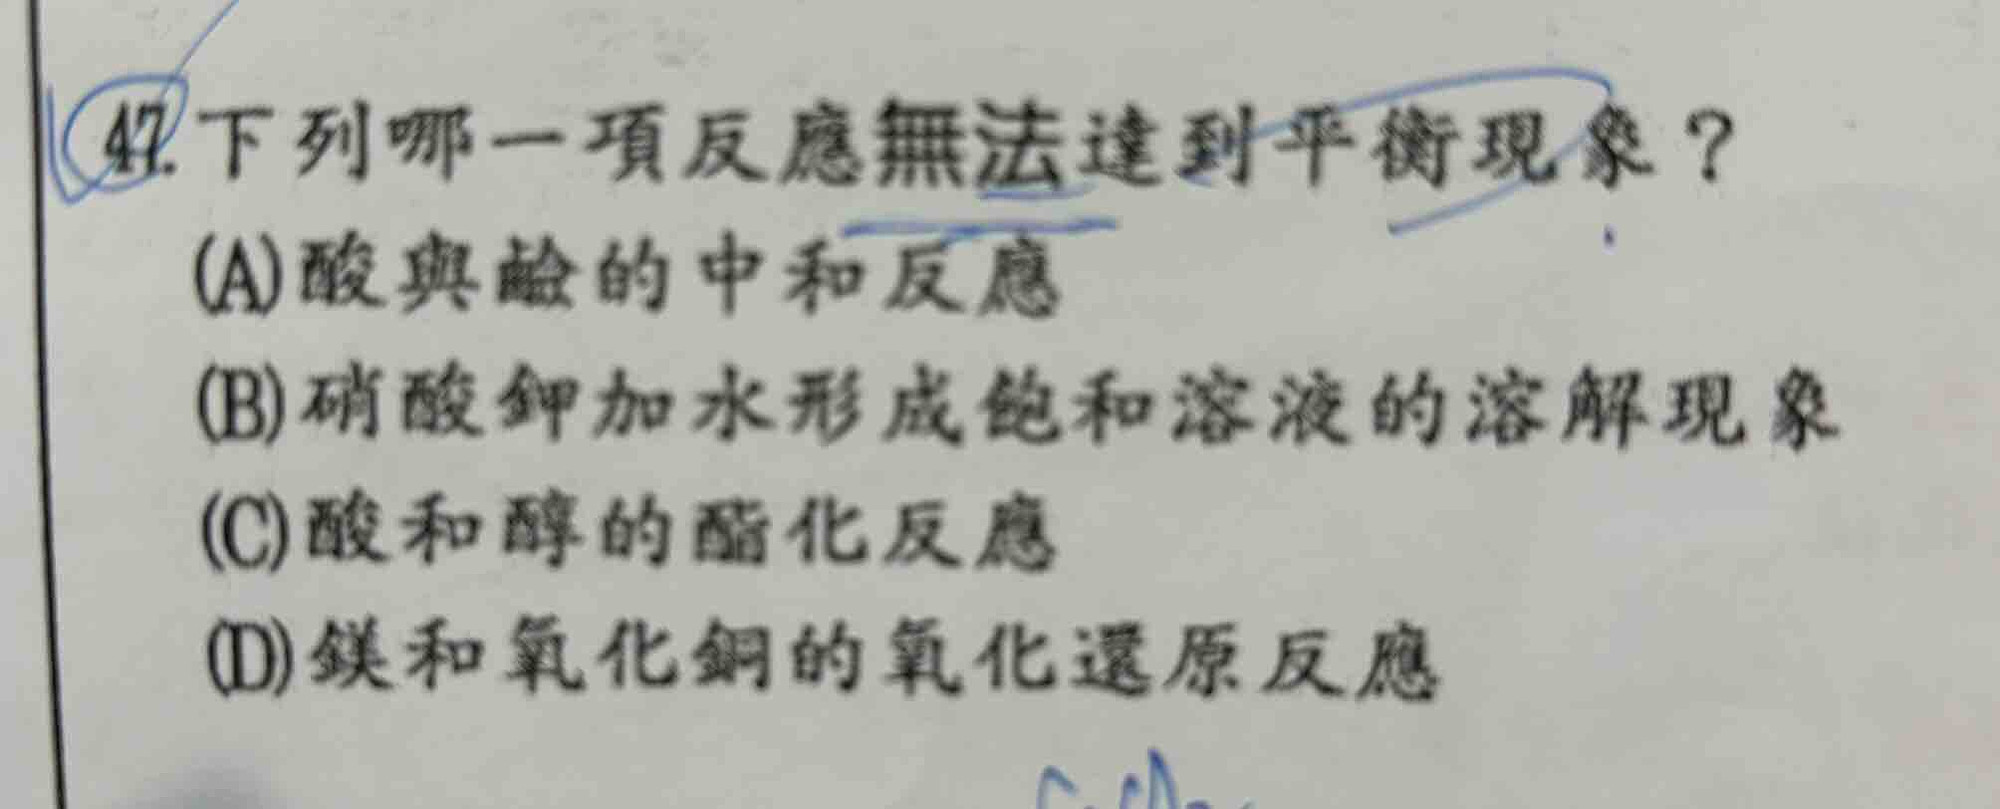 47.下列哪一項反應無法達到平衡現象？
(A)酸與鹼的中和反應
(B)硝酸鉀加水形成飽和溶液的溶解現象
(C)酸和醇的酯化反應
(D)鎂和氧化銅的氧化還原反應